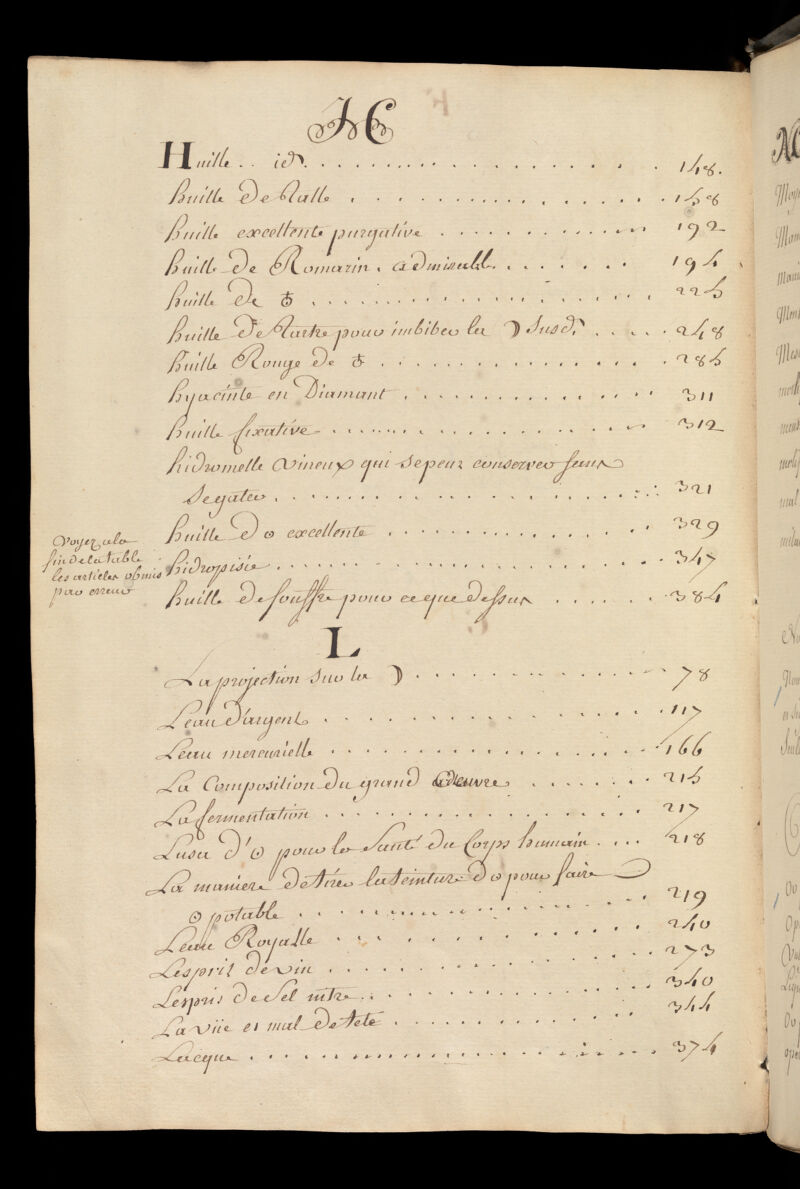 H
Huille .. id. 148.
huille De Talle 158
huille excellente purgative 192
huille de Romarin. admirable 194
huille de ♁ 225
huille de Tartre pour imbiber la ☽ susd. 248
huille Rouge de ♁ 285
hyacinte en Diamant 311
huille fixative 312
hidromelle vineux qui se peut conserver sans
se gater 321
huille d ☉ excellente 329
Voyez a la
fin de la table
les articles obmis
par erreur
hidropisie 347
huille de souffre pour ce que dessus 384
L
La projection sur la ☽ 78
L'eau d'argent 117
L'eau mercurielle 166
La Composition du grand œuvre 215
La fermentation 217
L'usa d'☉ pour la Santé du Corps humain 218
La maniere de tirer la teinture d ☉ pour faire
☉ potable 219
L'eau Royalle 240
L'esprit de vin 273
L'espris de sel nitre 340
La vüe et mal de tete 344
Lacque 374